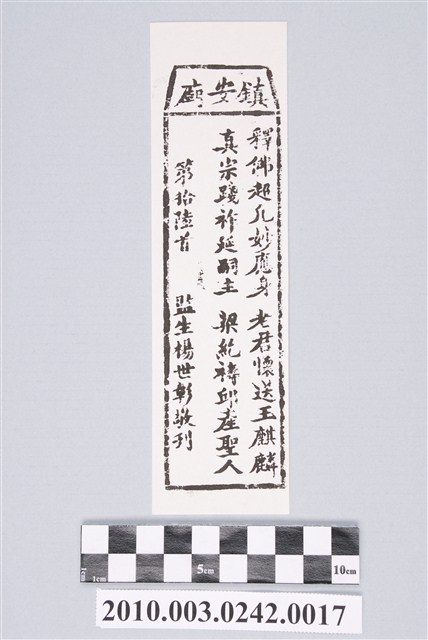 鎮安廟
釋佛超凡妙應身 老君懷送玉麒麟
真宗跪祚延嗣主 梁紇禱邱產聖人
第拾陸首 監生楊世彰敬刊
1cm 5cm 10cm
2010.003.0242.0017